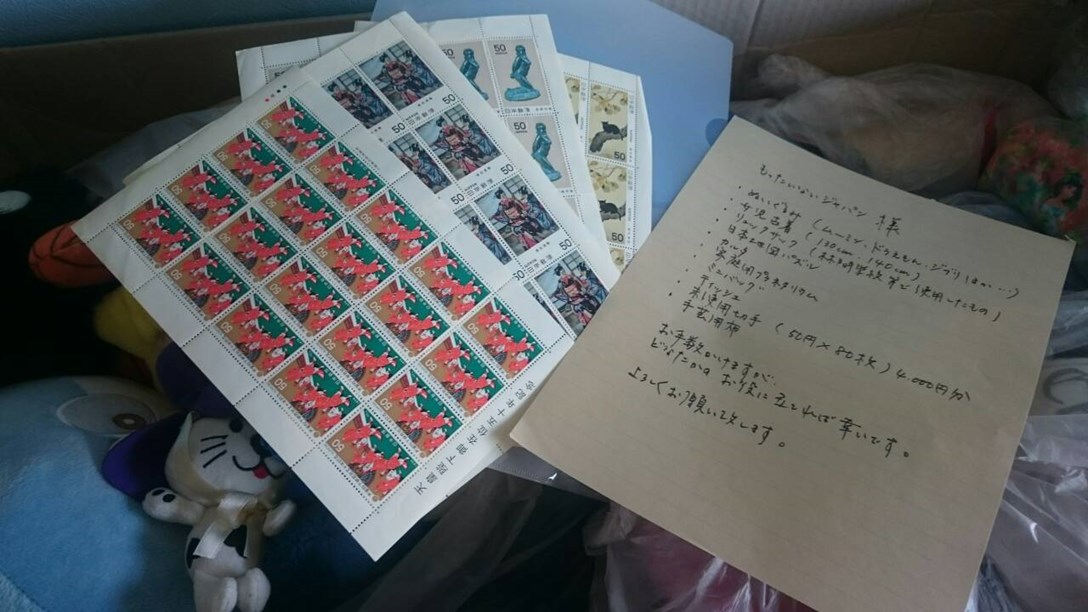 もったいないジャパン 様
・ぬいぐるみ (ムーミン、ドラえもん、ジブリ ほか…)
・女児古着 (130cm, 140cm)
・リュックサック (林間学校で使用したもの)
・日本地図パズル
・カルタ
・家庭用プラネタリウム
・ミニバッグ
・ティッシュ
・未使用切手 (50円×80枚) 4,000円分
・手芸用
お手数かけますが、
どなたかのお役に立てれば幸いです。
よろしくお願い致します。
天皇陛下御在位五十年記念
50
日本郵便